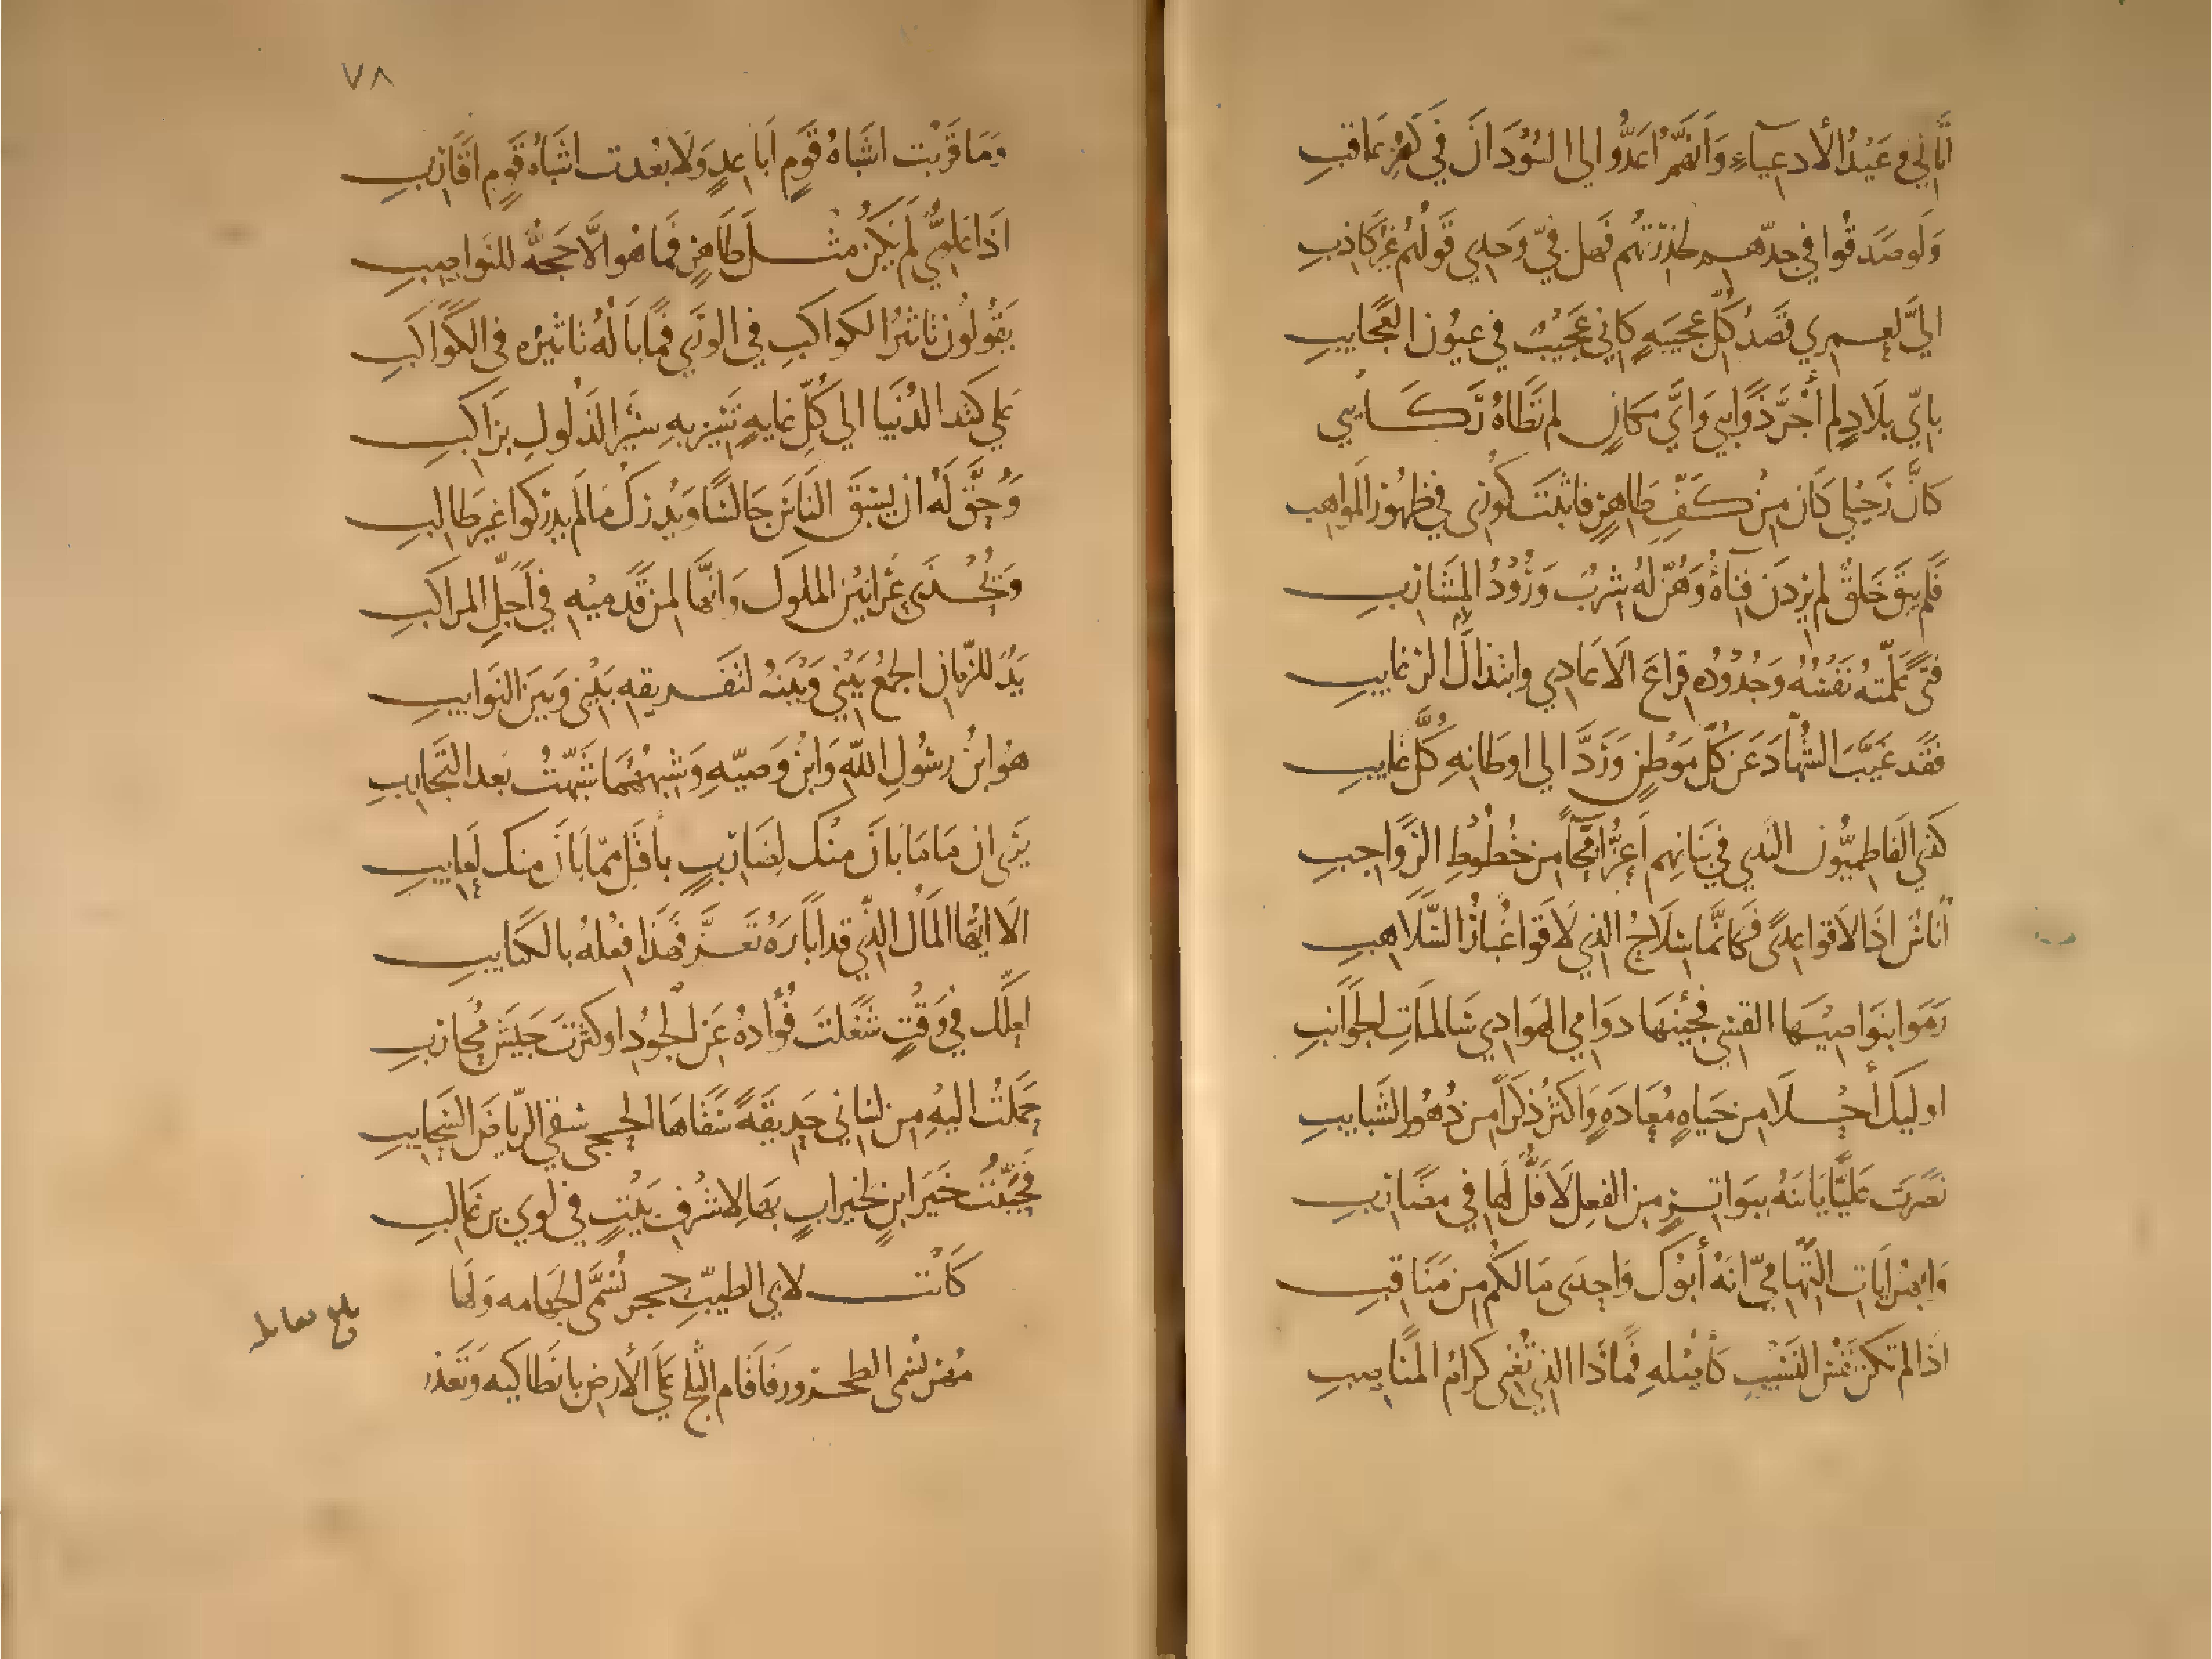 أتاني وعيد الأدعياء وأنهم أعدوا لي السودان في كفر عاقب
ولو صدقوا في جدهم لحذرتهم فهل في وحدي قولهم غير كاذب
الي لعمري قصد كل عجيبة كاني عجيب في عيون العجايب
باي بلاد لم أجر ذوابي واي مكان لم تطاه ركايبي
كان رحيلي كان من كف طاهر فاثبت كوري في ظهور المواهب
فلم يبق خلق لم يردن فناه وهن له شرب ورود المشارب
فتى علمته نفسه وجدوده قراع الاعادي وابتذال الرغايب
فقد غيب الشهاد عن كل موطن ورد الى اوطانه كل غايب
كذي الفاطميون الندى في بنانهم اعز امحاء من خطوط الرواجب
أناس اذا لاقوا عدى فكانما سلاح الذي لاقوا غبار السلاهب
رموا بنواصيها القسي فجينها دوامي الهوادي سالمات الجوانب
اوليك أحلا من حياه معاده واكثر ذكرا من دهور الشبايب
نصرت عليا يا ابنه ببواتر من الفعل لا فل لها في مضارب
وابهر ايات التهامي انه أبوك واجدى مالكم من مناقب
اذا لم تكن نفس النسيب كاصله فماذا الذي تغنى كرام المناصب
٧٨
وما قربت اشباه قوم اباعد ولا بعدت اشباه قوم اقارب
اذا علوي لم يكن مثل طاهر فما هو الا حجة للنواصب
يقولون تاثير الكواكب في الورى فما باله تاثيره في الكواكب
على كتد الدنيا الي كل غاية تسير به سير الذلول براكب
وحق له ان يسبق الناس جالسا ويدرك ما لم يدركوا غير طالب
ويحذى عرانين الملوك وانها لمن قدميه في اجل المراكب
يد للزمان الجمع بيني وبينه لتفريقه بيني وبين النوايب
هو ابن رسول الله وابن وصيه وشبههما شبهت بعد التجارب
يرى ان ما ما بان منك لضارب باقتل مما بان منك لعايب
الا ايها المال الذي قد اباره تعز فهذا فعله بالكتايب
لعلك في وقت شغلت فؤاده عن الجود او كثرت جيش محارب
حملت اليه من لساني حديقة سقاها الحجى سقي الرياض السحايب
فحييت خير ابن لخير اب بها لاشرف بيت في لوي بن غالب
كانت لابي الطيب حجر تسمى الجهامه ولها
مهر تسمى الطخرور فاقام الثلج على الأرض بانطاكيه وتعذر
بلغ مقابله